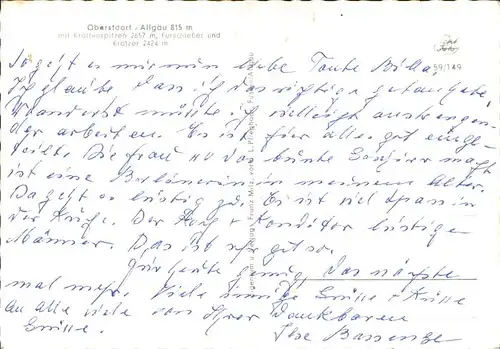 Oberstdorf - Allgäu 815 m
mit Krottenspitzen 2657 m, Fürschießer und
Kratzer 2424 m
59/149
So geht es mir nun liebe Tante Billa.
Ich glaube dass ich das richtige getan habe.
anstrengen
der arbeiten. Es ist für alles gut einge
teilt. Die Frau wo das bunte macht
ist eine Berlinerin in meinem Alter.
Da geht es lustig zu. Es ist viel Spass in
der Küche. Der Koch + Konditor lustige
Männer. Das ist sehr gut so.
Für heute genug, das nächste
mal mehr. Viele innige Grüße + Küsse
an alle viele von Ihrer dankbaren
Grüsse. Ilse